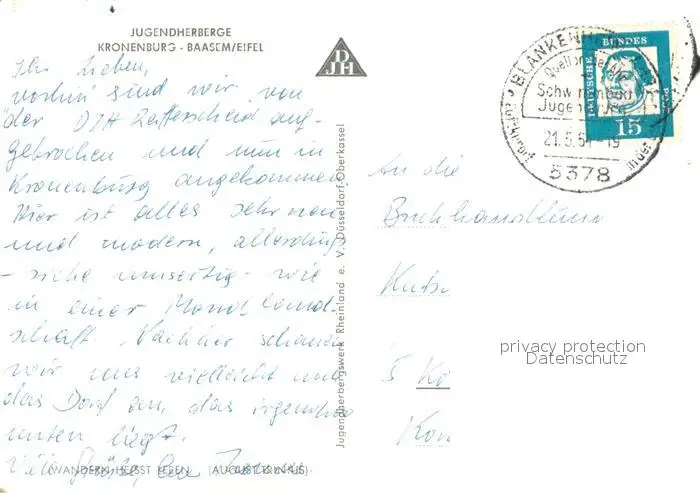 JUGENDHERBERGE
KRONENBURG - BAASEM/EIFEL
DJH
Ihr Lieben,
vorhin sind wir von
der DJH Reifferscheid auf-
gebrochen und nun in
Kronenburg angekommen.
Hier ist alles sehr neu
und modern, allerdings
- siehe umseitig - wie
in einer Mondland-
schaft. Nachher schauen
wir uns vielleicht noch
das Dorf an, das irgendwo
unten liegt.
Viele Grüße,
WANDERN HEISST
(AUGUST TRINIUS)
Jugendherbergswerk Rheinland e. V. Düsseldorf-Oberkassel
BLANKENH
Schw
Jugen
Luftkurort
in der
21.5.64-19
5378
DEUTSCHE BUNDES POST
15
An die
Buchhandlung
5 Kö
privacy protection
Datenschutz